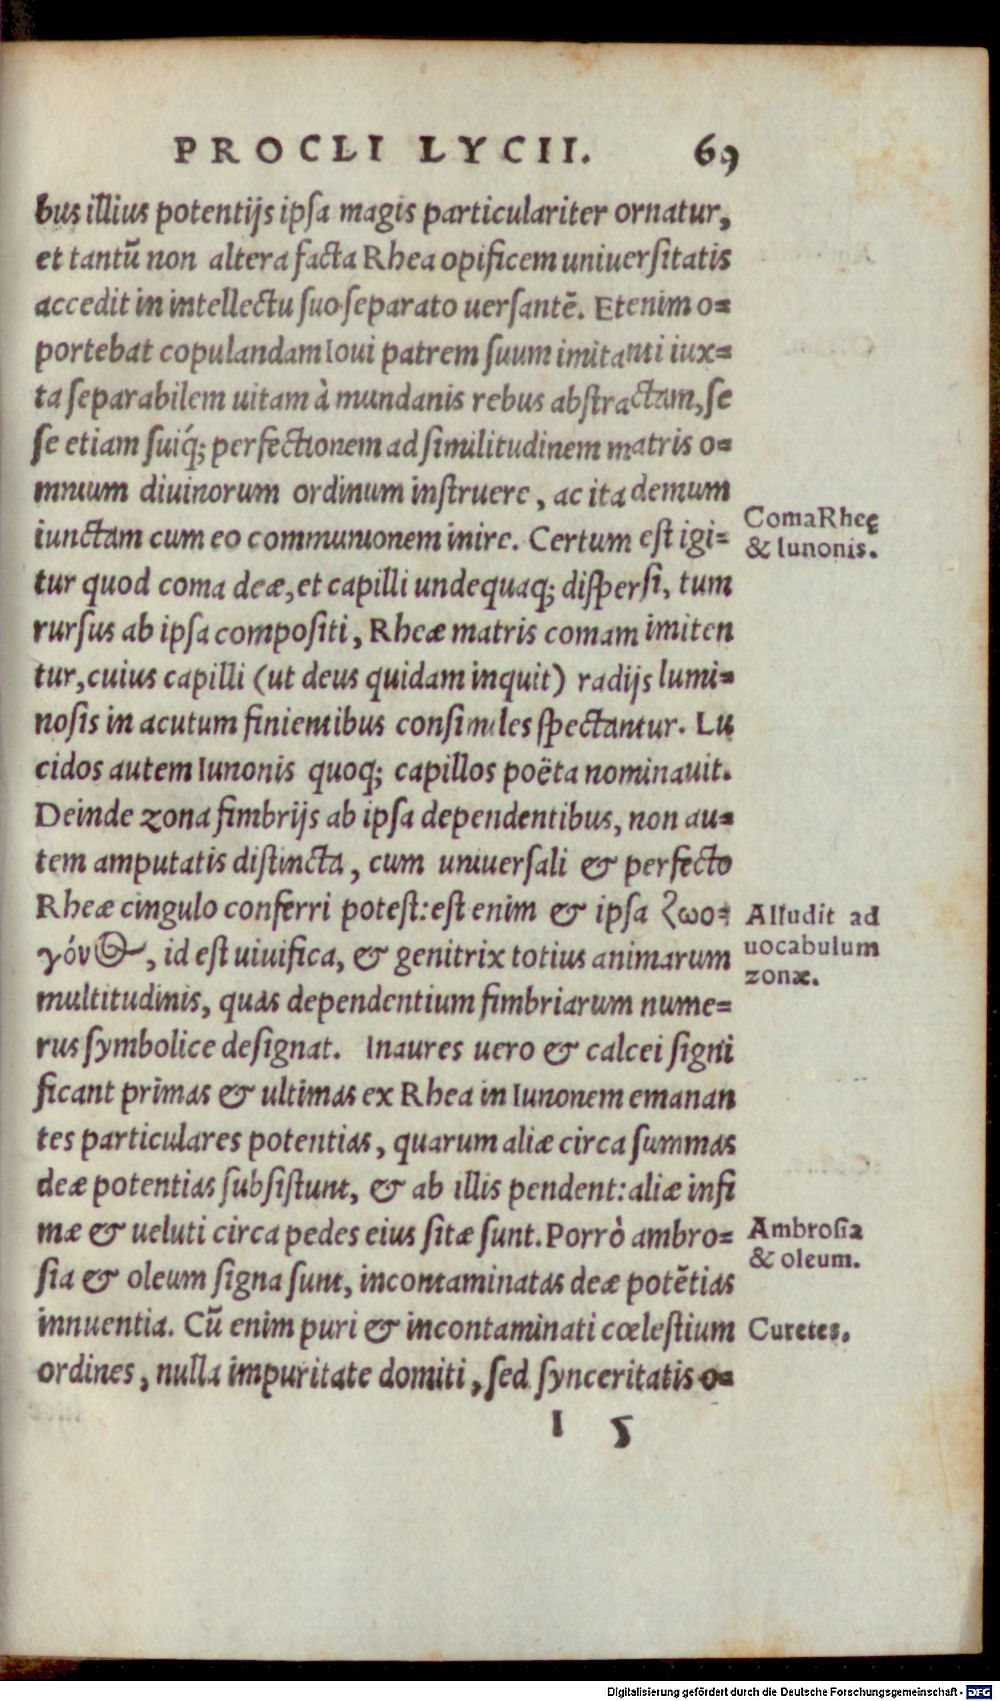 PROCLI LYCII. 69
bus illius potentijs ipſa magis particulariter ornatur,
et tantũ non altera facta Rhea opificem uniuerſitatis
accedit in intellectu ſuo ſeparato uerſantẽ. Etenim o=
portebat copulandam Ioui patrem ſuum imitanti iux=
ta ſeparabilem uitam à mundanis rebus abſtractam, ſe
ſe etiam ſuiq́; perfectionem ad ſimilitudinem matris o=
mnium diuinorum ordinum inſtruere, ac ita demum
iunctam cum eo communionem inire. Certum eſt igi=
tur quod coma deæ, et capilli undequaq; diſperſi, tum
rurſus ab ipſa compoſiti, Rheæ matris comam imiten
tur, cuius capilli (ut deus quidam inquit) radijs lumi=
noſis in acutum finientibus conſimiles ſpectantur. Lu
cidos autem Iunonis quoq; capillos poëta nominauit.
Deinde zona fimbrijs ab ipſa dependentibus, non au=
tem amputatis diſtincta, cum uniuerſali & perfecto
Rheæ cingulo conferri poteſt: eſt enim & ipſa ζωο=
γόνος, id eſt uiuifica, & genitrix totius animarum
multitudinis, quas dependentium fimbriarum nume=
rus ſymbolice deſignat. Inaures uero & calcei ſigni
ficant primas & ultimas ex Rhea in Iunonem emanan
tes particulares potentias, quarum aliæ circa ſummas
deæ potentias ſubſiſtunt, & ab illis pendent: aliæ infi
mæ & ueluti circa pedes eius ſitæ ſunt. Porrò ambro=
ſia & oleum ſigna ſunt, incontaminatas deæ potẽtias
innuentia. Cũ enim puri & incontaminati cœleſtium
ordines, nulla impuritate domiti, ſed ſynceritatis o=
I 5
Coma Rheę
& Iunonis.
Alludit ad
uocabulum
zonæ.
Ambroſia
& oleum.
Curetes.
Digitalisierung gefördert durch die Deutsche Forschungsgemeinschaft - DFG